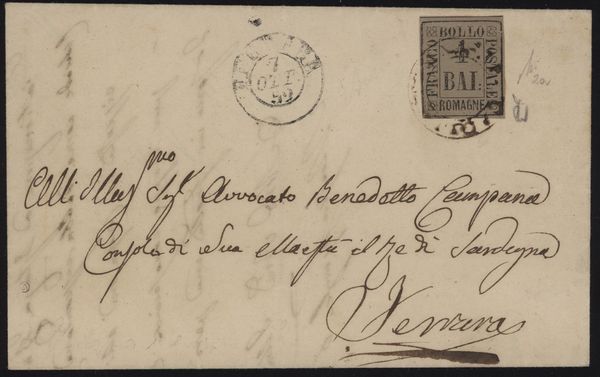 FRANCO BOLLO POSTALE
4
BAI.
ROMAGNE
7
59
All'Illus.mo Sig.r Avvocato Benedetto Campana
Console di Sua Maestà il Re di Sardegna
Ferrara